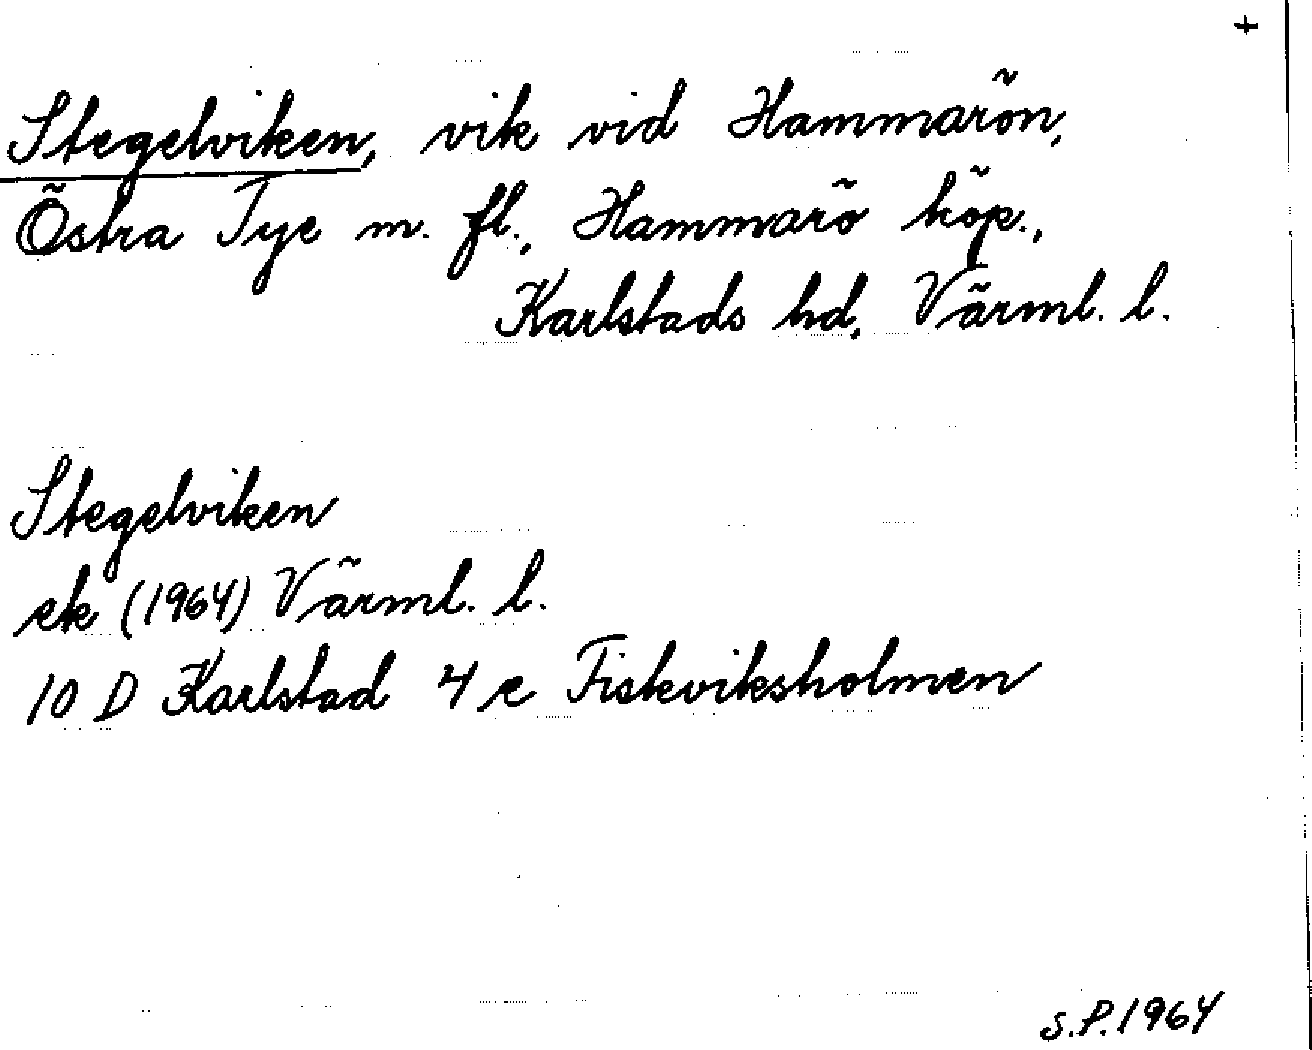 +
Stegelviken, vik vid Hammarön,
Östra Tye m. fl., Hammarö köp.,
Karlstads hd, Värml. l.
Stegelviken
ek (1964) Värml. l.
10 D Karlstad 4 e Fiskviksholmen
S.P. 1964